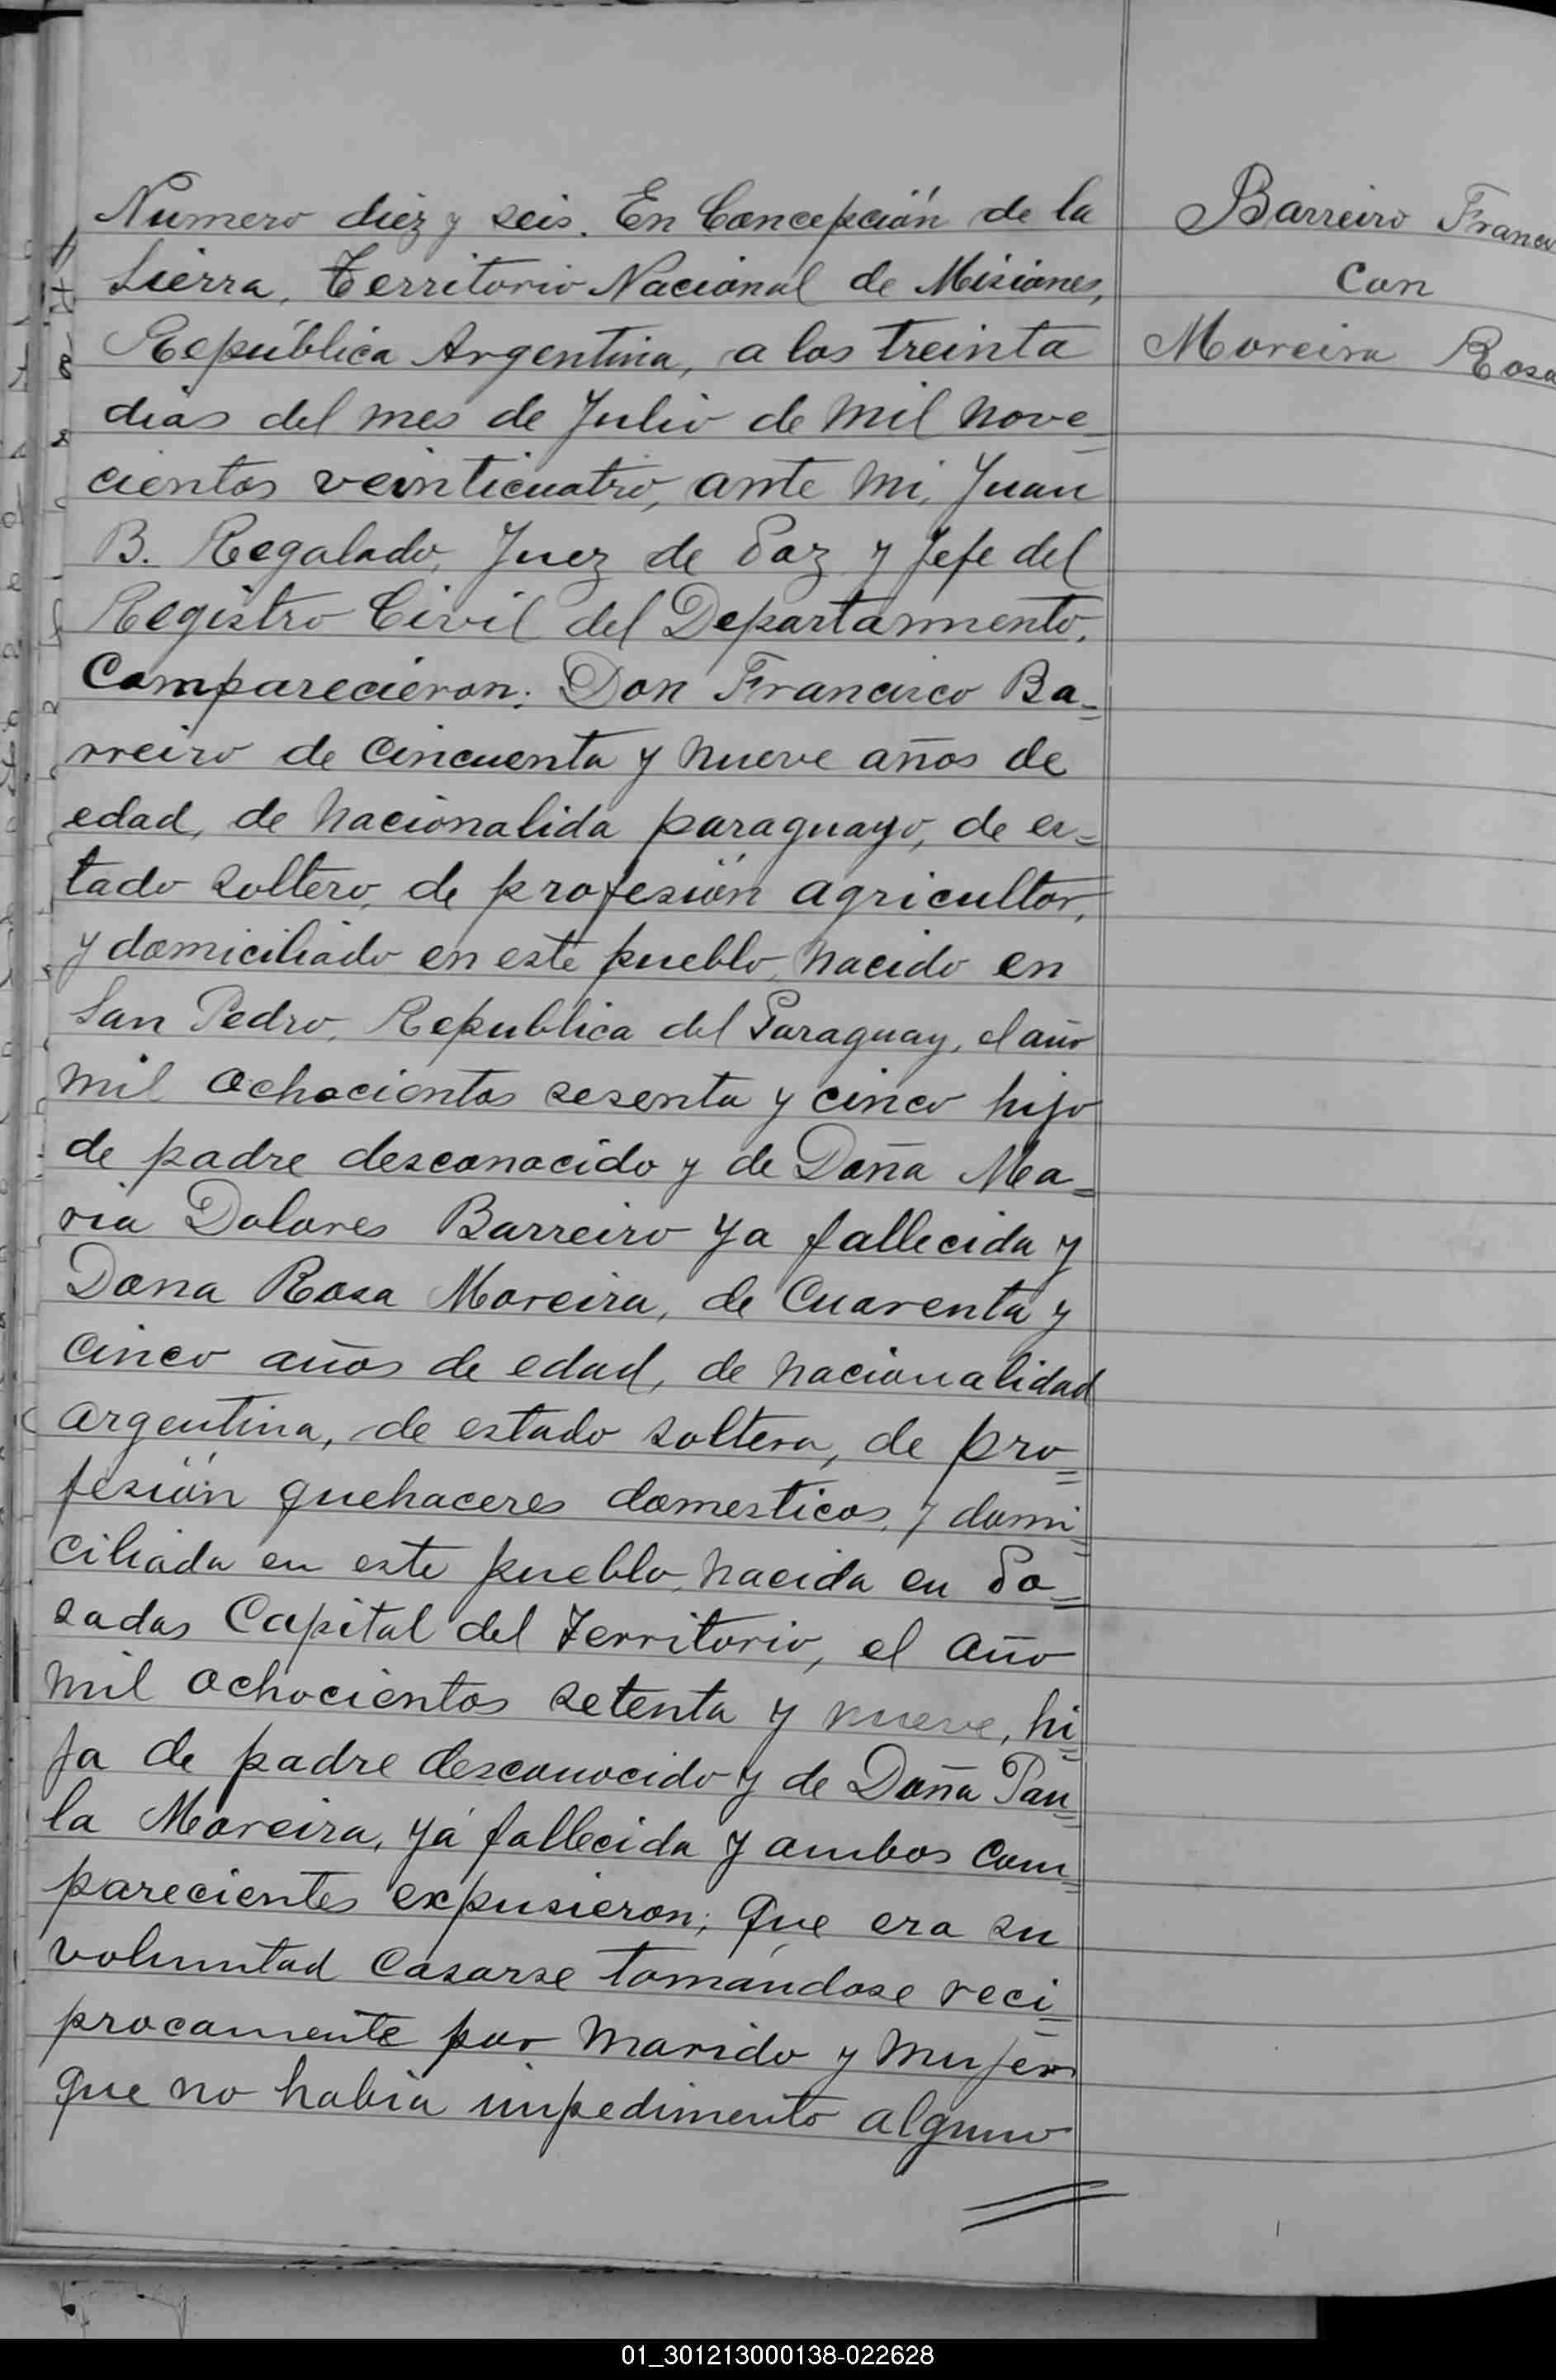 Numero diez y seis. En Concepción de la
Sierra, Territorio Nacional de Misiones,
República Argentina, a los treinta
dias del mes de Julio de mil nove=
cientos veinticuatro, ante mi, Juan
B. Regalado, Juez de Paz y Jefe del
Registro Civil del Departanmento,
Comparecieron: Don Francisco Ba=
rreiro de cincuenta y nueve años de
edad, de nacionalida paraguayo, de es=
tado soltero, de profesión agricultor,
y domiciliado en este pueblo, nacido en
San Pedro, Republica del Paraguay, el año
mil ochocientos sesenta y cinco hijo
de padre desconocido y de Doña Ma=
ria Dolores Barreiro ya fallecida y
Dona Rosa Moreira, de cuarenta y
cinco años de edad, de nacionalidad
argentina, de estado soltera, de pro=
fesión quehaceres domesticos, y domi=
ciliada en este pueblo, nacida en Po=
sadas Capital del Territorio, el año
mil ochocientos setenta y nueve, hi=
ja de padre desconocido y de Doña Pau=
la Moreira, yá fallecida y ambos com=
parecientes expusieron; que era su
voluntad casarse tomándose reci=
procamente por marido y mujer
que no habia impedimento alguno
Barreiro Franci
Con
Moreira Rosa
01_301213000138-022628